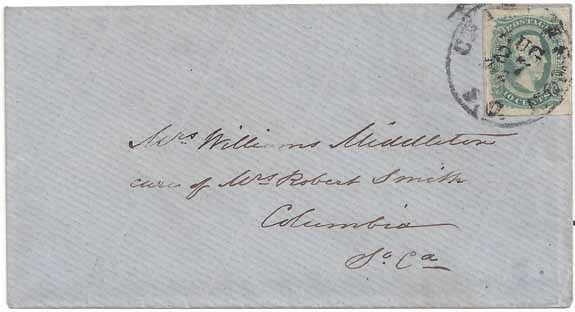 POSTAGE
AUG
Mrs Williams Middleton
care of Mrs Robert Smith
Columbia
So. Ca